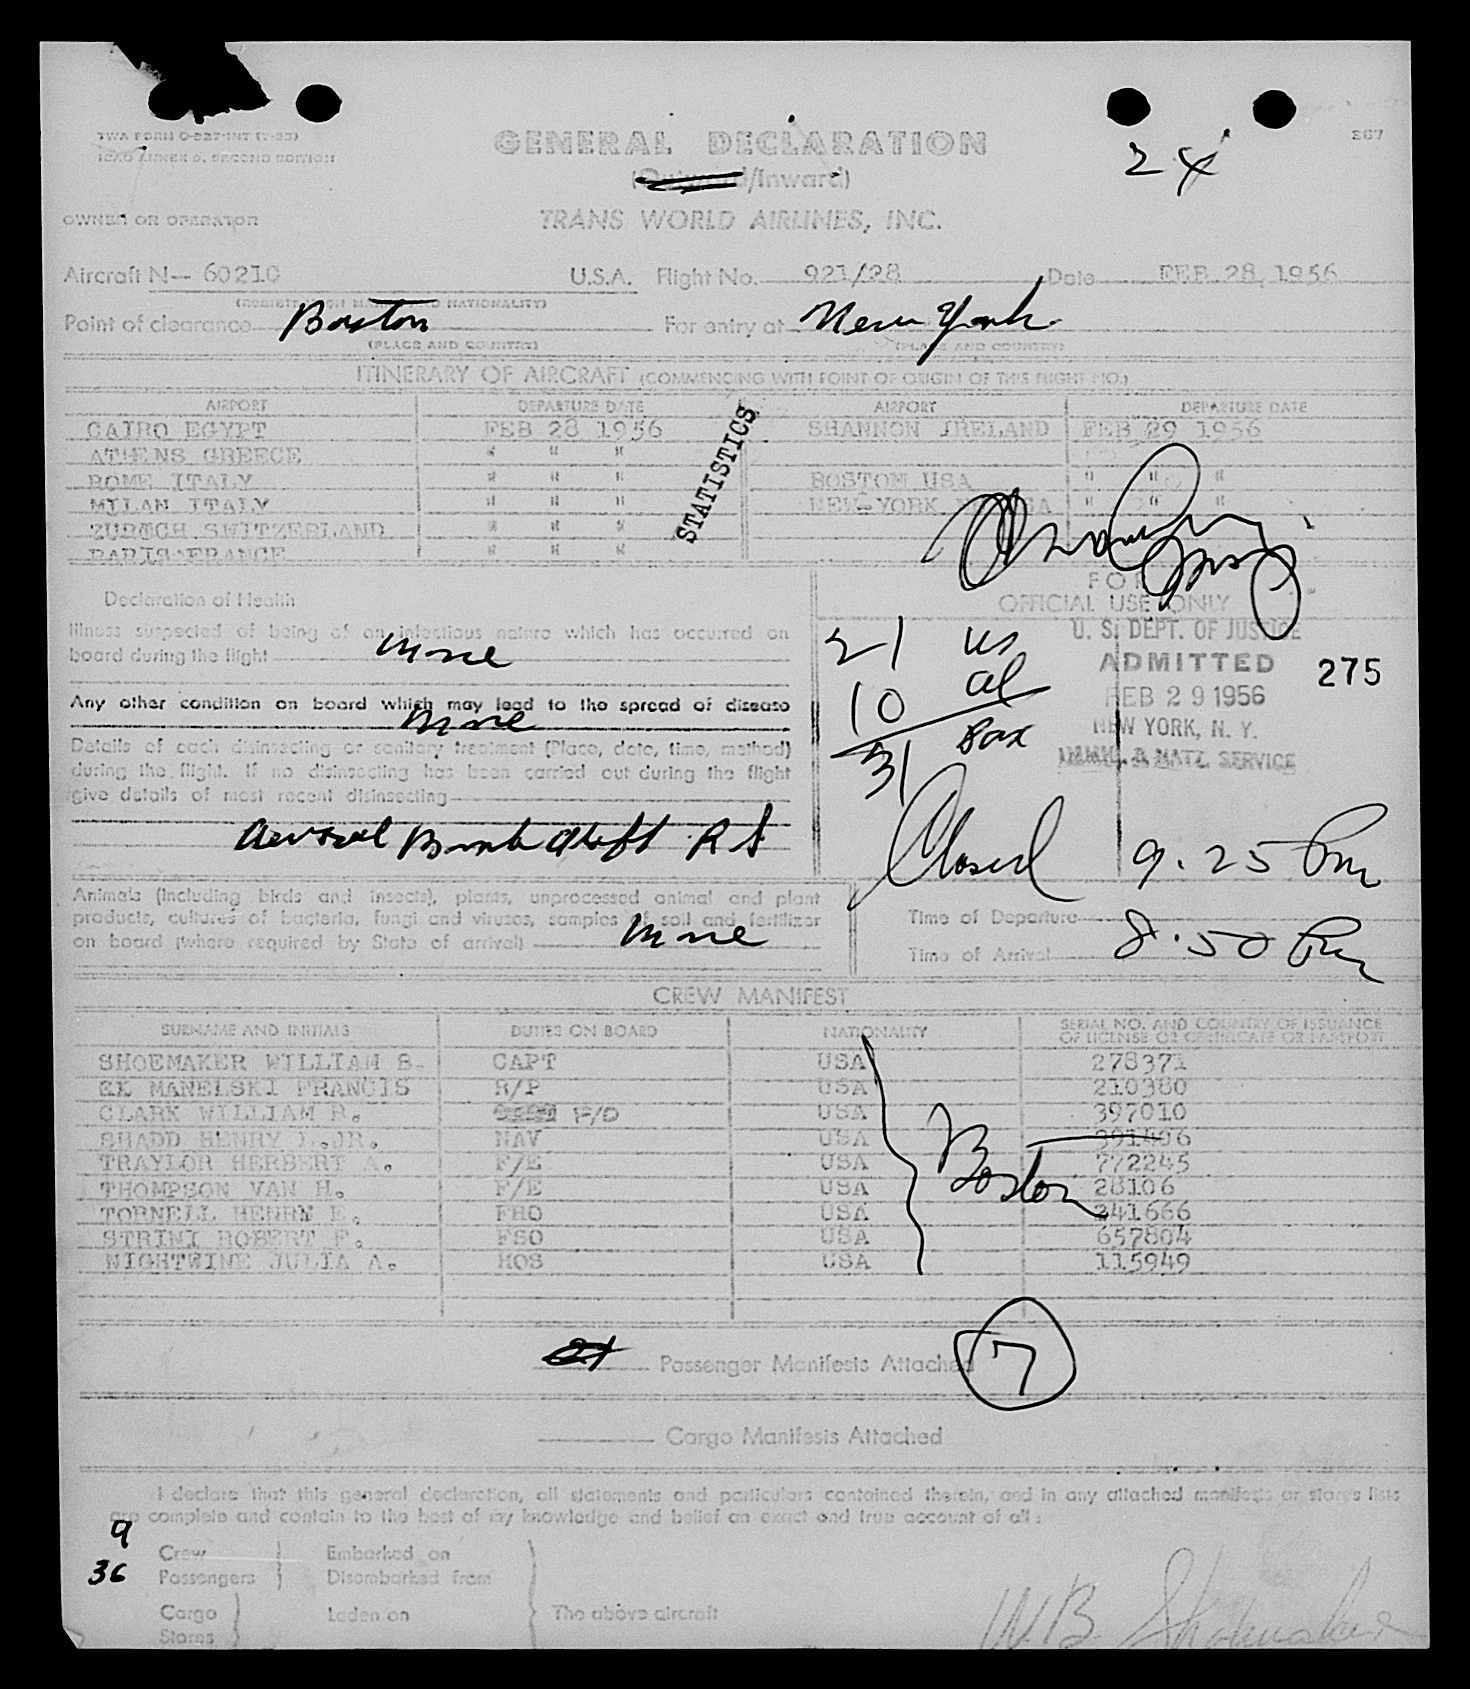 TWA FORM O-527-INT
ICAO ANNEX 9, SECOND EDITION
GENERAL DECLARATION
367
24
(Outward/Inward)
OWNER OR OPERATOR
TRANS WORLD AIRLINES, INC.
Aircraft N- 60210 U.S.A. Flight No. 921/28 Date FEB 28, 1956
(REGISTRATION MARKS AND NATIONALITY)
Point of clearance Boston For entry at New York
(PLACE AND COUNTRY) (PLACE AND COUNTRY)
ITINERARY OF AIRCRAFT (COMMENCING WITH POINT OF ORIGIN OF THIS FLIGHT NO.)
AIRPORT DEPARTURE DATE AIRPORT DEPARTURE DATE
CAIRO EGYPT FEB 28 1956 SHANNON IRELAND FEB 29 1956
ATHENS GREECE " " "
ROME ITALY " " " BOSTON USA " " "
MILAN ITALY " " " NEW YORK USA " " "
ZURICH SWITZERLAND " " "
PARIS FRANCE " " "
STATISTICS
FOR
OFFICIAL USE ONLY
Declaration of Health
Illness suspected of being of an infectious nature which has occurred on
board during the flight None
Any other condition on board which may lead to the spread of disease
None
Details of each disinsecting or sanitary treatment (Place, date, time, method)
during the flight. If no disinsecting has been carried out during the flight
give details of most recent disinsecting
Aerosol Bomb
21 US
10 al
31 Pax
U. S. DEPT. OF JUSTICE
ADMITTED 275
FEB 29 1956
NEW YORK, N. Y.
IMMIG. & NATZ. SERVICE
Closed 9.25 Pm
Animals (including birds and insects), plants, unprocessed animal and plant
products, cultures of bacteria, fungi and viruses, samples of soil and fertilizer
on board (where required by State of arrival) None
Time of Departure
Time of Arrival 8.50 Pm
CREW MANIFEST
SURNAME AND INITIALS DUTIES ON BOARD NATIONALITY SERIAL NO. AND COUNTRY OF ISSUANCE
OF LICENSE OR CERTIFICATE OR PASSPORT
SHOEMAKER WILLIAM B. CAPT USA 278371
EK MANELSKI FRANCIS R/P USA 210380
CLARK WILLIAM R. F/O USA 397010
SHADD HENRY L. JR. NAV USA 391406
TRAYLOR HERBERT A. F/E USA 772245
THOMPSON VAN H. F/E USA 28106
TORNELL HENRY E. FRO USA 241666
STRINI ROBERT F. FSO USA 657804
NIGHTWINE JULIA A. HOS USA 115949
Boston
Passenger Manifests Attached 7
Cargo Manifests Attached
I declare that this general declaration, all statements and particulars contained therein, and in any attached manifests or stores lists
are complete and contain to the best of my knowledge and belief an exact and true account of all:
9 Crew Embarked on
36 Passengers Disembarked from
Cargo Laden on The above aircraft
Stores
W.B. Shoemaker